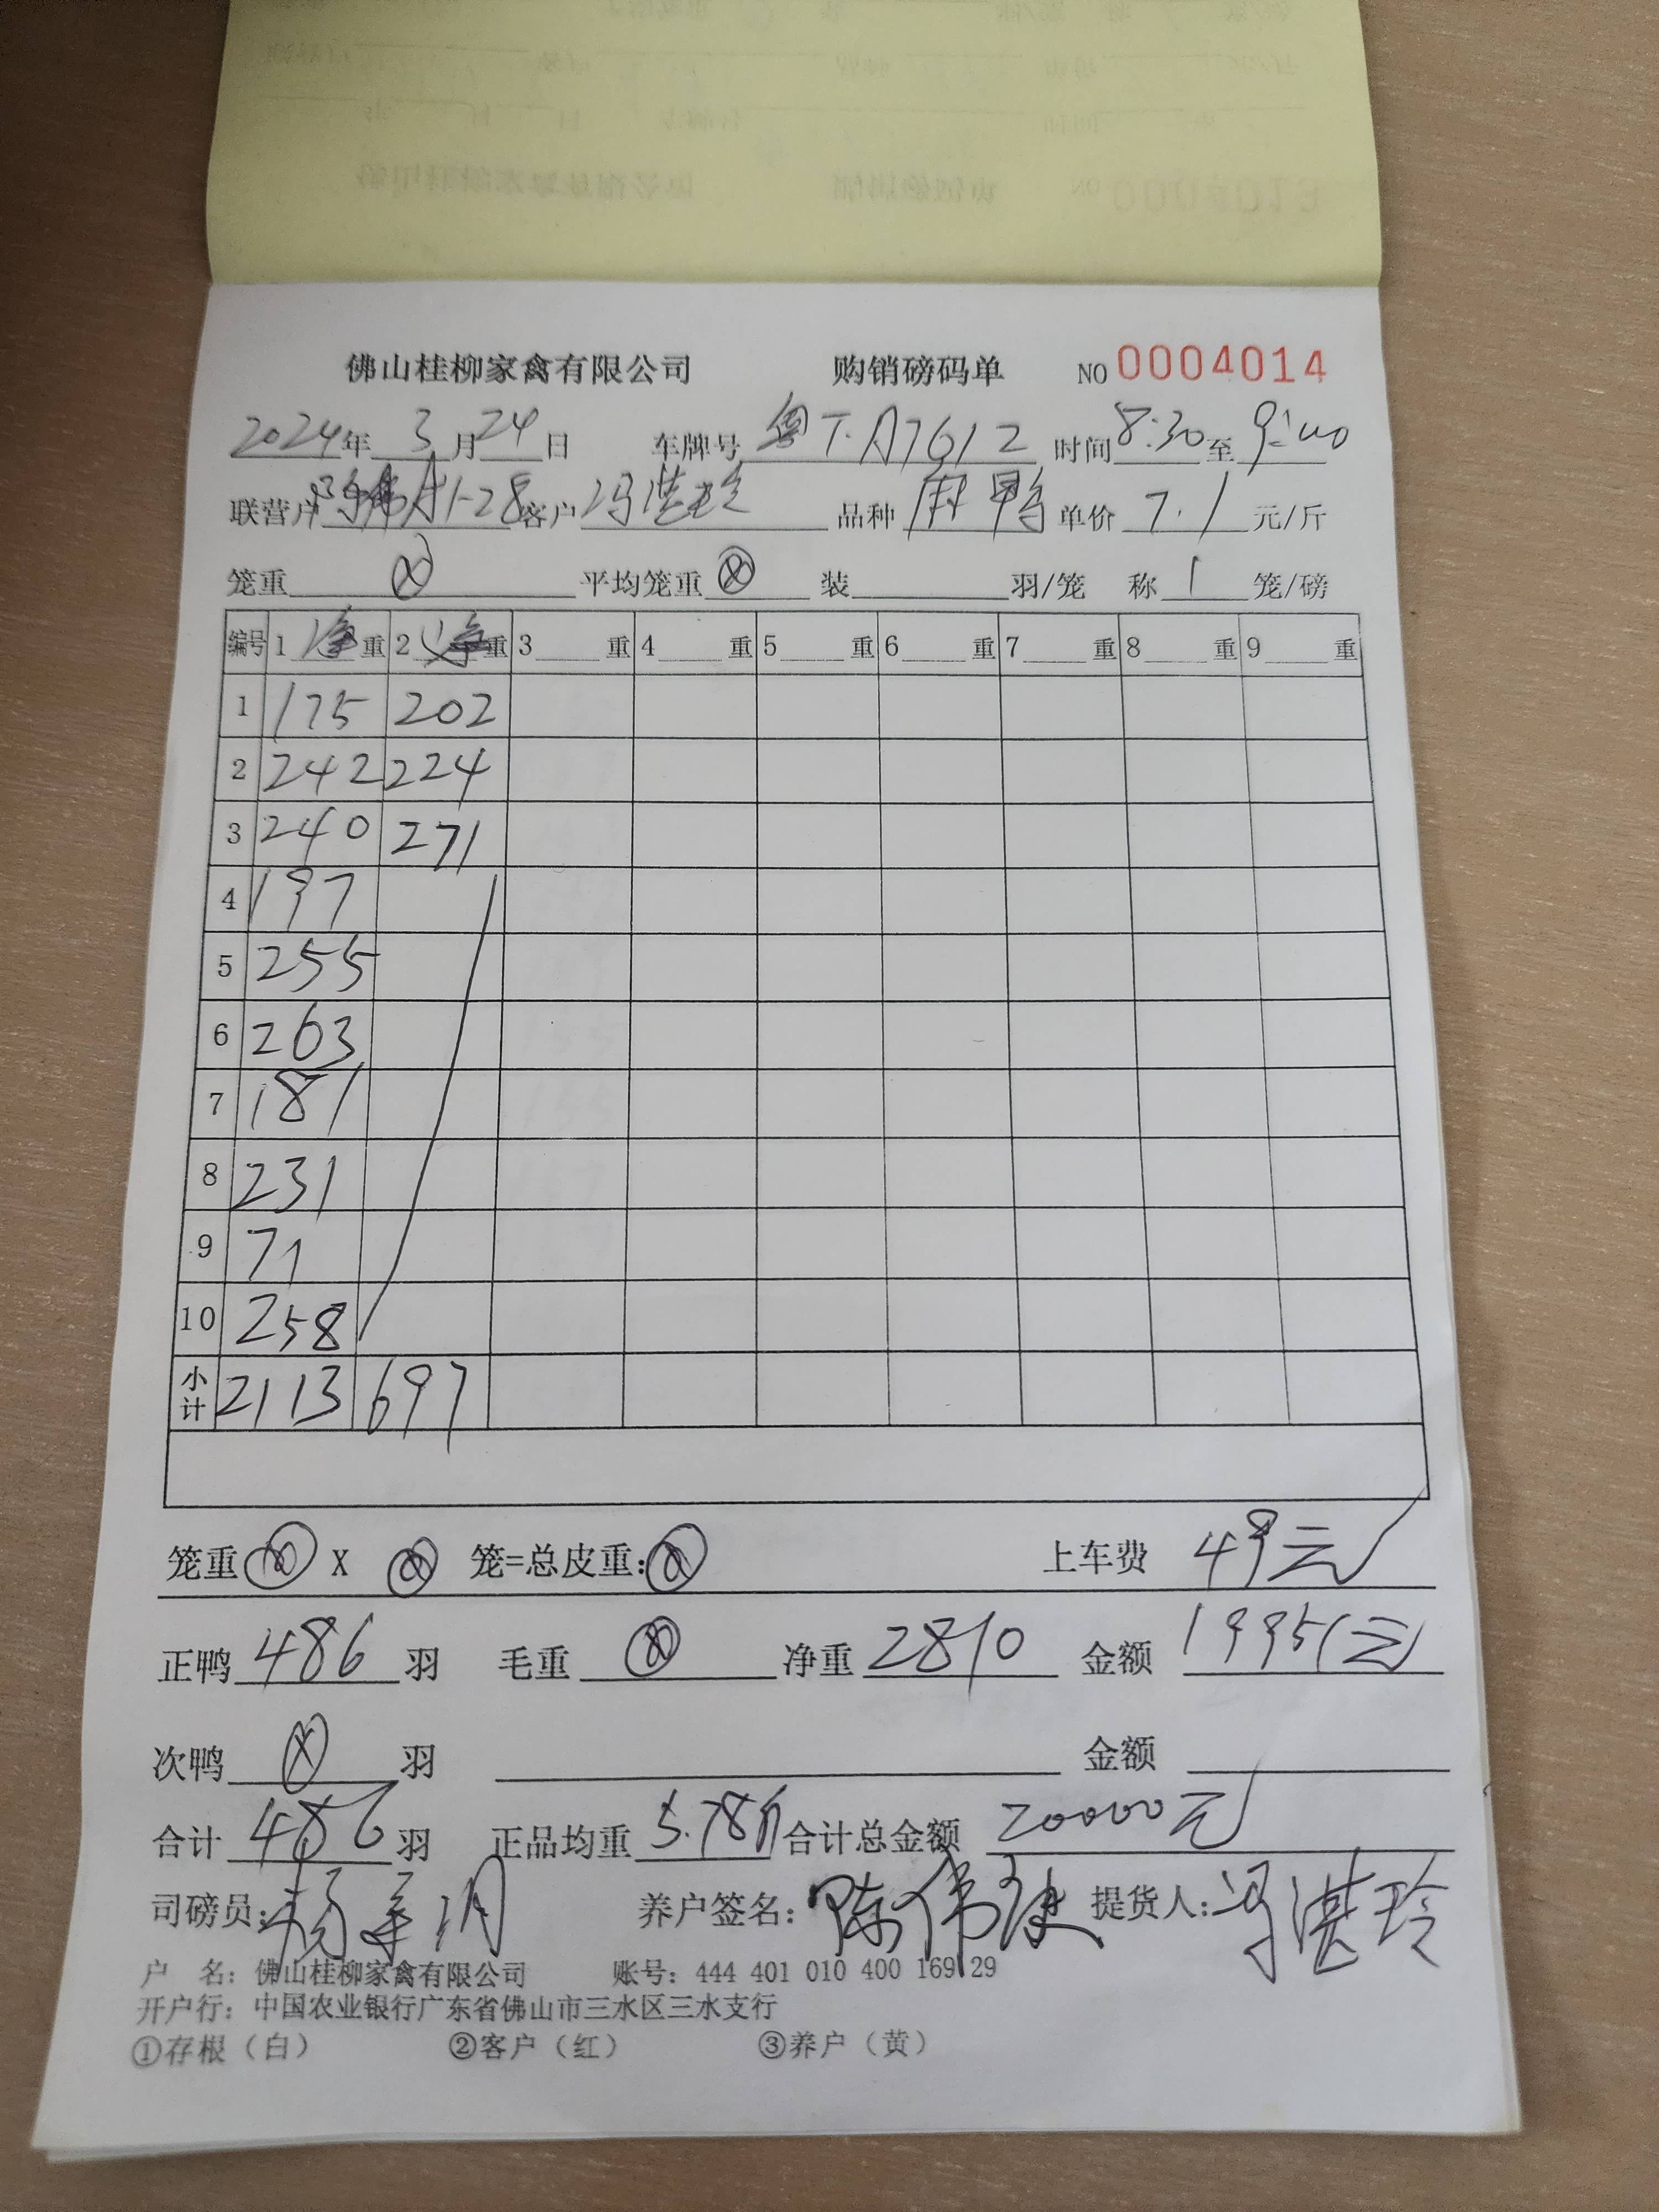 佛山桂柳家禽有限公司 购销磅码单 NO 0004014
2024年 3月24日 车牌号 粤T·A7612 时间 8:30 至 9:00
联营户 1-28 客户 冯湛玲 品种 麻鸭 单价 7.1 元/斤
笼重 平均笼重 装 羽/笼 称 1 笼/磅
编号 1 净重 2 净重 3 重 4 重 5 重 6 重 7 重 8 重 9 重
1 175 202
2 242 224
3 240 271
4 197
5 255
6 263
7 181
8 231
9 71
10 258
小计 2113 697
笼重 X 笼=总皮重: 上车费 49元
正鸭 486 羽 毛重 净重 2810 金额 19951元
次鸭 羽 金额
合计 486 羽 正品均重 5.78斤 合计总金额 20000元
司磅员: 养户签名: 陈伟 提货人: 冯湛玲
户 名: 佛山桂柳家禽有限公司 账号: 444 401 010 400 169 29
开户行: 中国农业银行广东省佛山市三水区三水支行
①存根（白） ②客户（红） ③养户（黄）